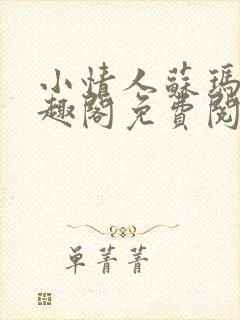 小情人蘇瑪
趣閣免費閱
单菁菁